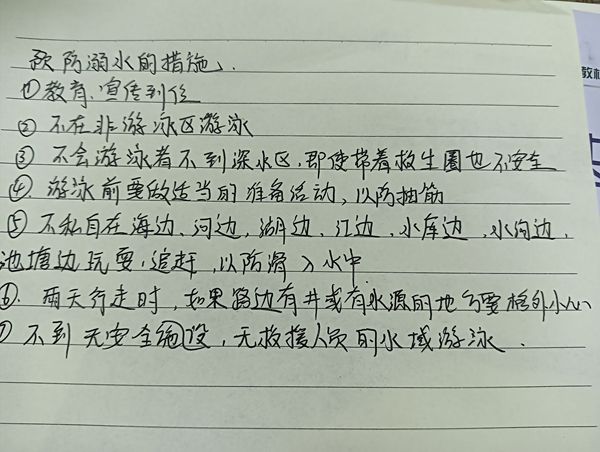 预防溺水的措施、
①教育、宣传到位
② 不在非游泳区游泳
③ 不会游泳者不到深水区,即使带着救生圈也不安全
④. 游泳前要做适当的准备活动,以防抽筋
⑤ 不私自在海边、河边、湖边、江边、水库边、水沟边、
池塘边玩耍、追赶,以防滑入水中
⑥. 雨天行走时,如果路边有井或有水源的地方要格外小心
⑦ 不到无安全施设,无救援人员的水域游泳.
教材